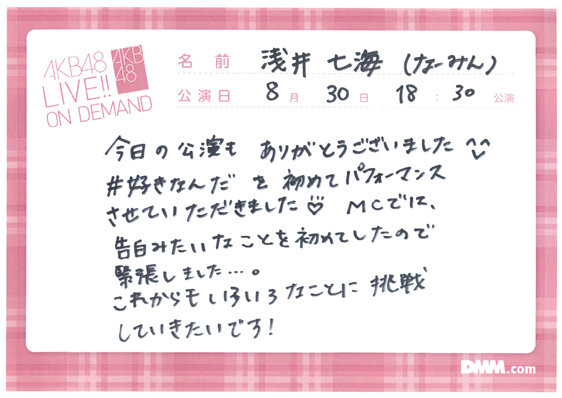 AKB48
LIVE!!
ON DEMAND
AKB
48
名前 浅井 七海 (なーみん)
公演日 8月 30日 18:30 公演
今日の公演も ありがとうございました ^^
#好きなんだ を 初めて パフォーマンス
させていただきました♡ MCでは、
告白みたいなことを初めてしたので
緊張しました…。
これからもいろいろなことに 挑戦
していきたいです!
DMM.com